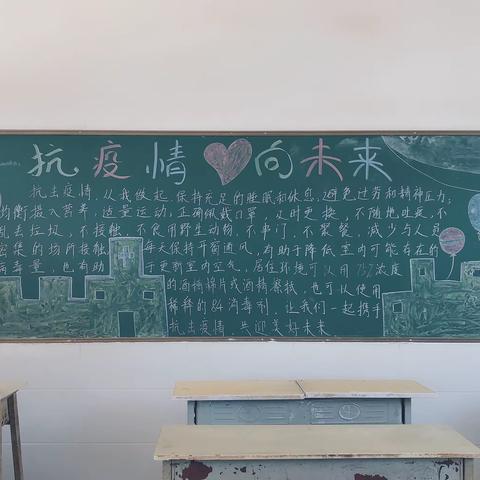 抗疫情 向未来
抗击疫情,从我做起,保持充足的睡眠和休息,避免过劳和精神压力;
均衡摄入营养,适量运动,正确佩戴口罩,及时更换,不随地吐痰,不
乱丢垃圾,不接触,不食用野生动物,不串门,不聚餐,减少与人员
密集的场所接触,每天保持开窗通风,有助于降低室内可能存在的
病毒量,也有助于更新室内空气,居住环境可以用75%浓度
的酒精棉片或酒精擦拭,也可以使用
稀释的84消毒剂,让我们一起携手
抗击疫情 共迎美好未来